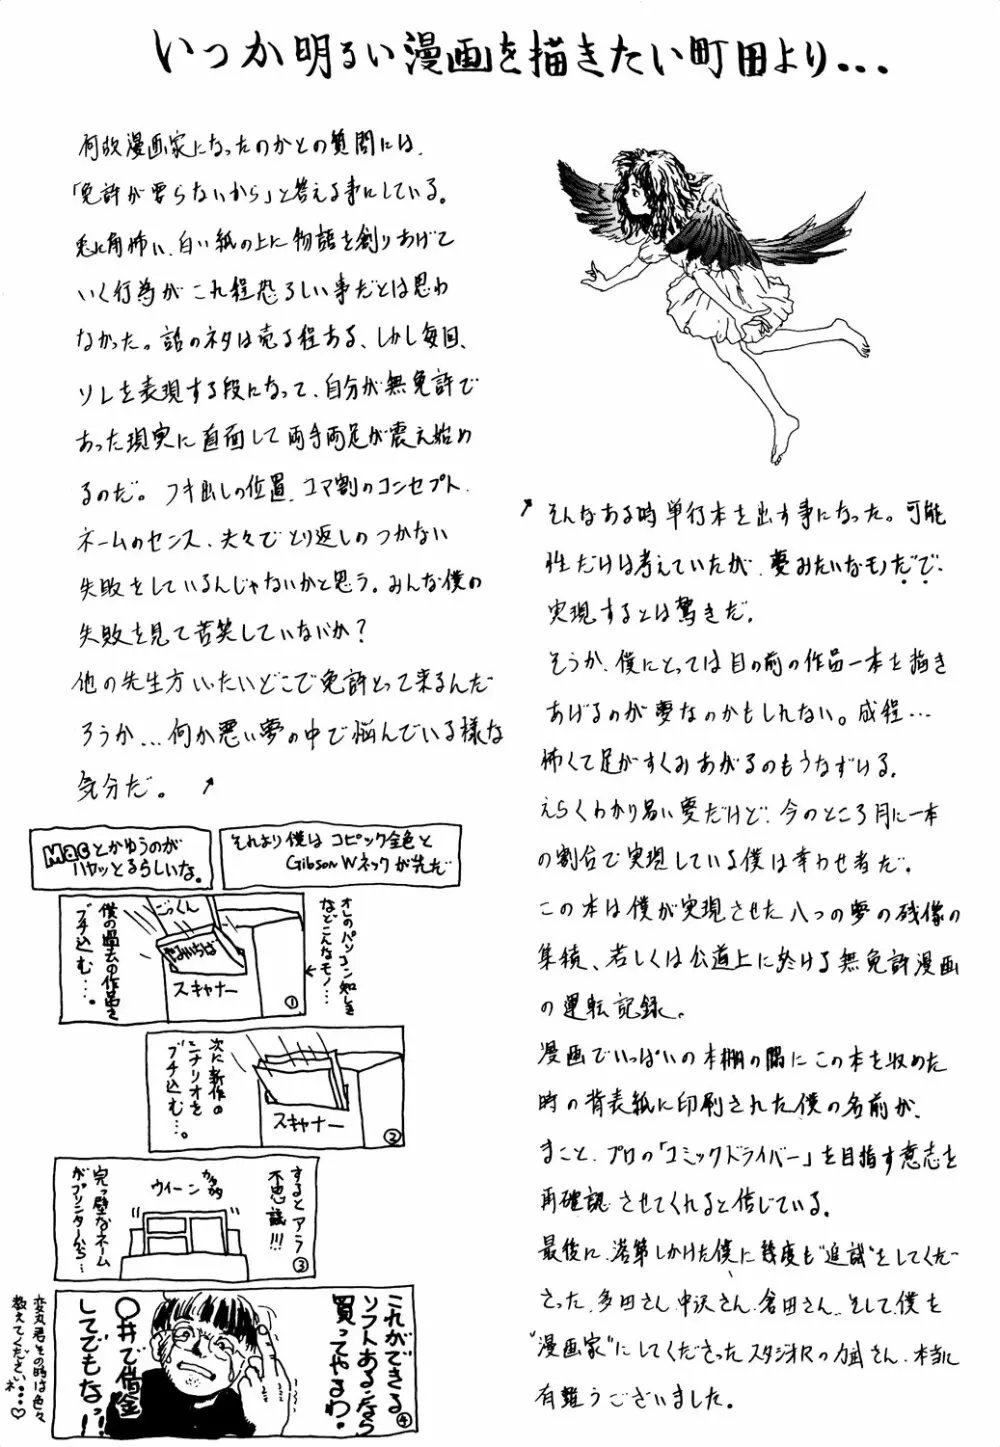 いつか明るい漫画を描きたい町田より...
何故漫画家になったのかとの質問には、
「免許が要らないから」と答える事にしている。
兎に角怖い、白い紙の上に物語を創りあげて
いく行為がこれ程恐ろしい事だとは思わ
なかった。話のネタは売る程ある、しかし毎回、
ソレを表現する段になって、自分が無免許で
あった現実に直面して両手両足が震え始め
るのだ。フキ出しの位置、コマ割のコンセプト、
ネームのセンス、夫々でとり返しのつかない
失敗をしているんじゃないかと思う。みんな僕の
失敗を見て苦笑していないか?
他の先生方いったいどこで免許とって来るんだ
ろうか...何か悪い夢の中で悩んでいる様な
気分だ。↗
↗そんなある時単行本を出す事になった。可能
性だけは考えていたが、夢みたいなモノだで、
実現するとは驚きだ。
そうか、僕にとっては目の前の作品一本を描き
あげるのが夢なのかもしれない。成程...
怖くて足がすくみあがるのもうなずける。
えらくわかり易い夢だけど、今のところ月に一本
の割合で実現している僕は幸わせ者だ。
この本は僕が実現させた八つの夢の残像の
集積、若しくは公道上に於ける無免許漫画
の運転記録。
漫画でいっぱいの本棚の隅にこの本を収めた
時の背表紙に印刷された僕の名前が、
まこと、プロの「コミックドライバー」を目指す意志を
再確認させてくれると信じている。
最後に、落第しかけた僕に幾度も"追試"をしてくだ
さった、多田さん、中沢さん、倉田さん、そして、僕を
"漫画家"にしてくださったスタジオRの力武さん、本当に
有難うございました。
Macとかゆうのが
ハヤッとるらしいな。
それより僕はコピック全色と
GibsonWネックが先だ
僕の過去の作品を
ブチ込む...。
ごっくん
やみいちば
スキャナー
①
オレのパソコン知しき
などこんなモノ...
次に新作の
シナリオを
ブチ込む...。
スキャナー
②
するとアラ
不思議!!!
ウイーン
カタカタ
完っ璧なネーム
がプリンターから...
③
これができる
ソフトあるなら
買ってやるわ。
〇井で借金
してでもなっ!!
④
変丸君その時は色々
教えてくださいネ...♡